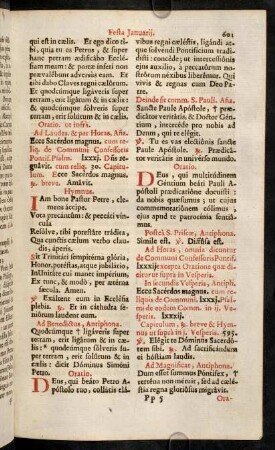 Festa Januarij. 601
qui est in cælis. Et ego dico ti-
bi, quia tu es Petrus, & super
hanc petram ædificabo Eccle-
siam meam: & portæ inferi non
prævalebunt adversùs eam. Et
tibi dabo Claves regni cælórum.
Et quodcúmque ligáveris super
terram, erit ligátum & in cælis:
& quodcúmque sólveris super
terram, erit solútum & in cælis.
Oratio. ut infra.
Ad Laudes. & per Horas, Aña.
Ecce Sacérdos magnus. cum re-
liq. de Communi Confessoris
Pontif. Psalm. lxxxj. Dns re-
gnávit. cum reliq. 30. Capitu-
lum. Ecce Sacérdos magnus.
℟. breve. Amávit.
Hymnus.
IAm bone Pastor Petre, clemens
áccipe.
Vota precántum: & peccáti vin-
cula
Resólve, tibi potestáte trádita;
Qua cunctis cælum verbo clau-
dis, áperis.
Sit Trinitáti sempitérna glória,
Honor, potéstas, atque jubilátio,
In Unitáte cui manet impérium,
Ex tunc, & modò, per ætérna
sæcula. Amen.
℣. Exáltent eum in Ecclésia
plebis. ℟. Et in cáthedra se-
niórum laudent eum.
Ad Benedictus, Antiphona.
Quodcúmque † ligáveris super
terram, erit ligátum & in cæ-
lis: & quodcúmque sólveris su-
per terram, erit solútum & in
cælis: dicit Dóminus Simóni
Petro. Oratio.
DEus, qui beáto Petro A-
póstolo tuo, collátis clá-
vibus regni cæléstis, ligándi at-
que solvéndi Pontifícium tradi-
dísti: concéde; ut intercessiónis
ejus auxílio, à peccatórum no-
strórum néxibus liberémur. Qui
vivis & regnas cum Deo Pa-
tre.
Deinde fit comm. S. Pauli. Aña.
Sancte Paule Apóstole, præ-
dicátor veritátis, & Doctor Gén-
tium, intercéde pro nobis ad
Deum, qui te elégit.
℣. Tu es vas electiónis sancte
Paule Apóstole. ℟. Prædicá-
tor veritátis in univérso mundo.
Oratio.
DEus, qui multitúdinem
Géntium beáti Pauli A-
póstoli prædicatióne docuísti:
da nobis quǽsumus; ut cujus
commemoratiónem cólimus,
ejus apud te patrocínia sentiá-
mus.
Postea S. Priscæ, Antiphona.
Simile est. ℣. Diffúsa est.
Ad Horas, omnia dicuntur
de Communi Confessoris Pontif.
lxxxije excepta Oratione quæ di-
citur ut supra in Vesperis.
In secundis Vesperis, Antiph.
Ecce Sacérdos magnus. cum re-
liquis de Communi. lxxxj. Psal-
mi de eodem Comm. in ij. Ve-
speris. lxxxij.
Capitulum, ℟. breve & Hym-
nus ut supra in j. Vesperis. 595.
℣. Elégit te Dóminus Sacerdó-
tem sibi. ℟. Ad sacrificándum
ei hóstiam laudis.
Ad Magnificat, Antiphona.
Dum esset summus Póntifex, †
terréna non métuit, sed ad cælé-
stia regna gloriósus migrávit.
Pp 5 Ora-